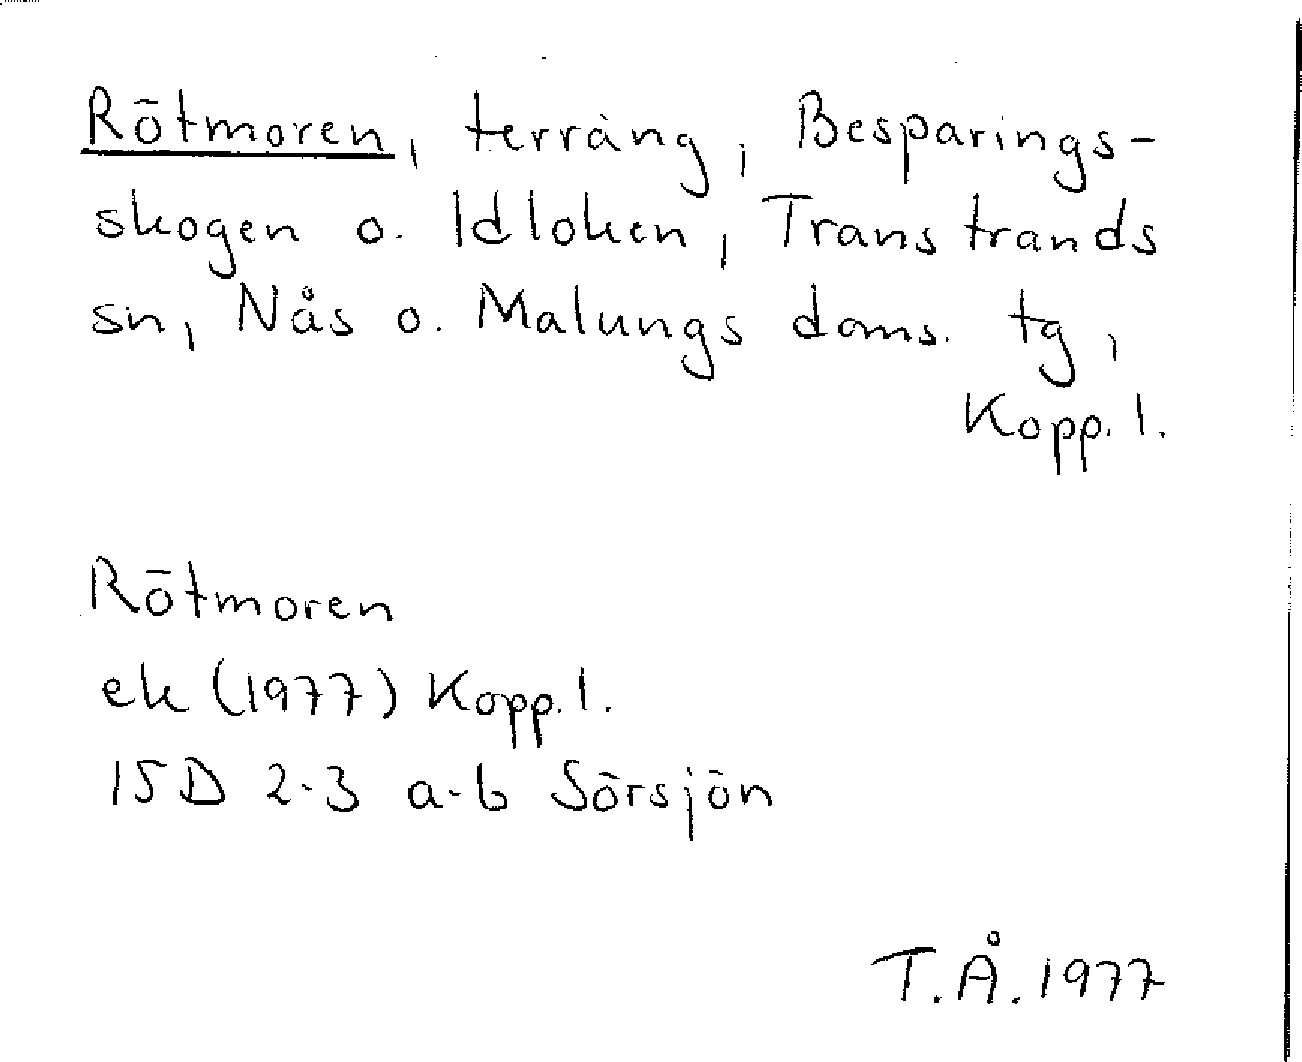 Rötmoren, terräng, Besparings-
skogen o. Idloken, Transtrands
sn, Nås o. Malungs doms. tg,
Kopp. l.
Rötmoren
ek (1977) Kopp. l.
15D 2-3 a-b Sörsjön
T.Å. 1977